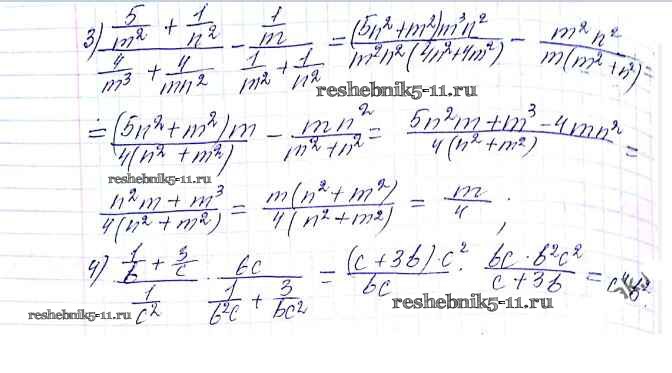 3) (5/m² + 1/n²)/(4/m³ + 4/mn²) − (1/m)/(1/m² + 1/n²) = (5n²+m²)m³n²/m²n²(4n²+4m²) − m²n²/m(m²+n²) =
reshebnik5-11.ru
= (5n²+m²)m/4(n²+m²) − mn²/m²+n² = 5n²m+m³−4mn²/4(n²+m²) =
reshebnik5-11.ru
n²m+m³/4(n²+m²) = m(n²+m²)/4(n²+m²) = m/4 ;
4) (1/b + 3/c)/(1/c²) · bc/(1/b²c + 3/bc²) = (c+3b)·c²/bc · bc·b²c²/c+3b = c⁴b².
reshebnik5-11.ru
reshebnik5-11.ru